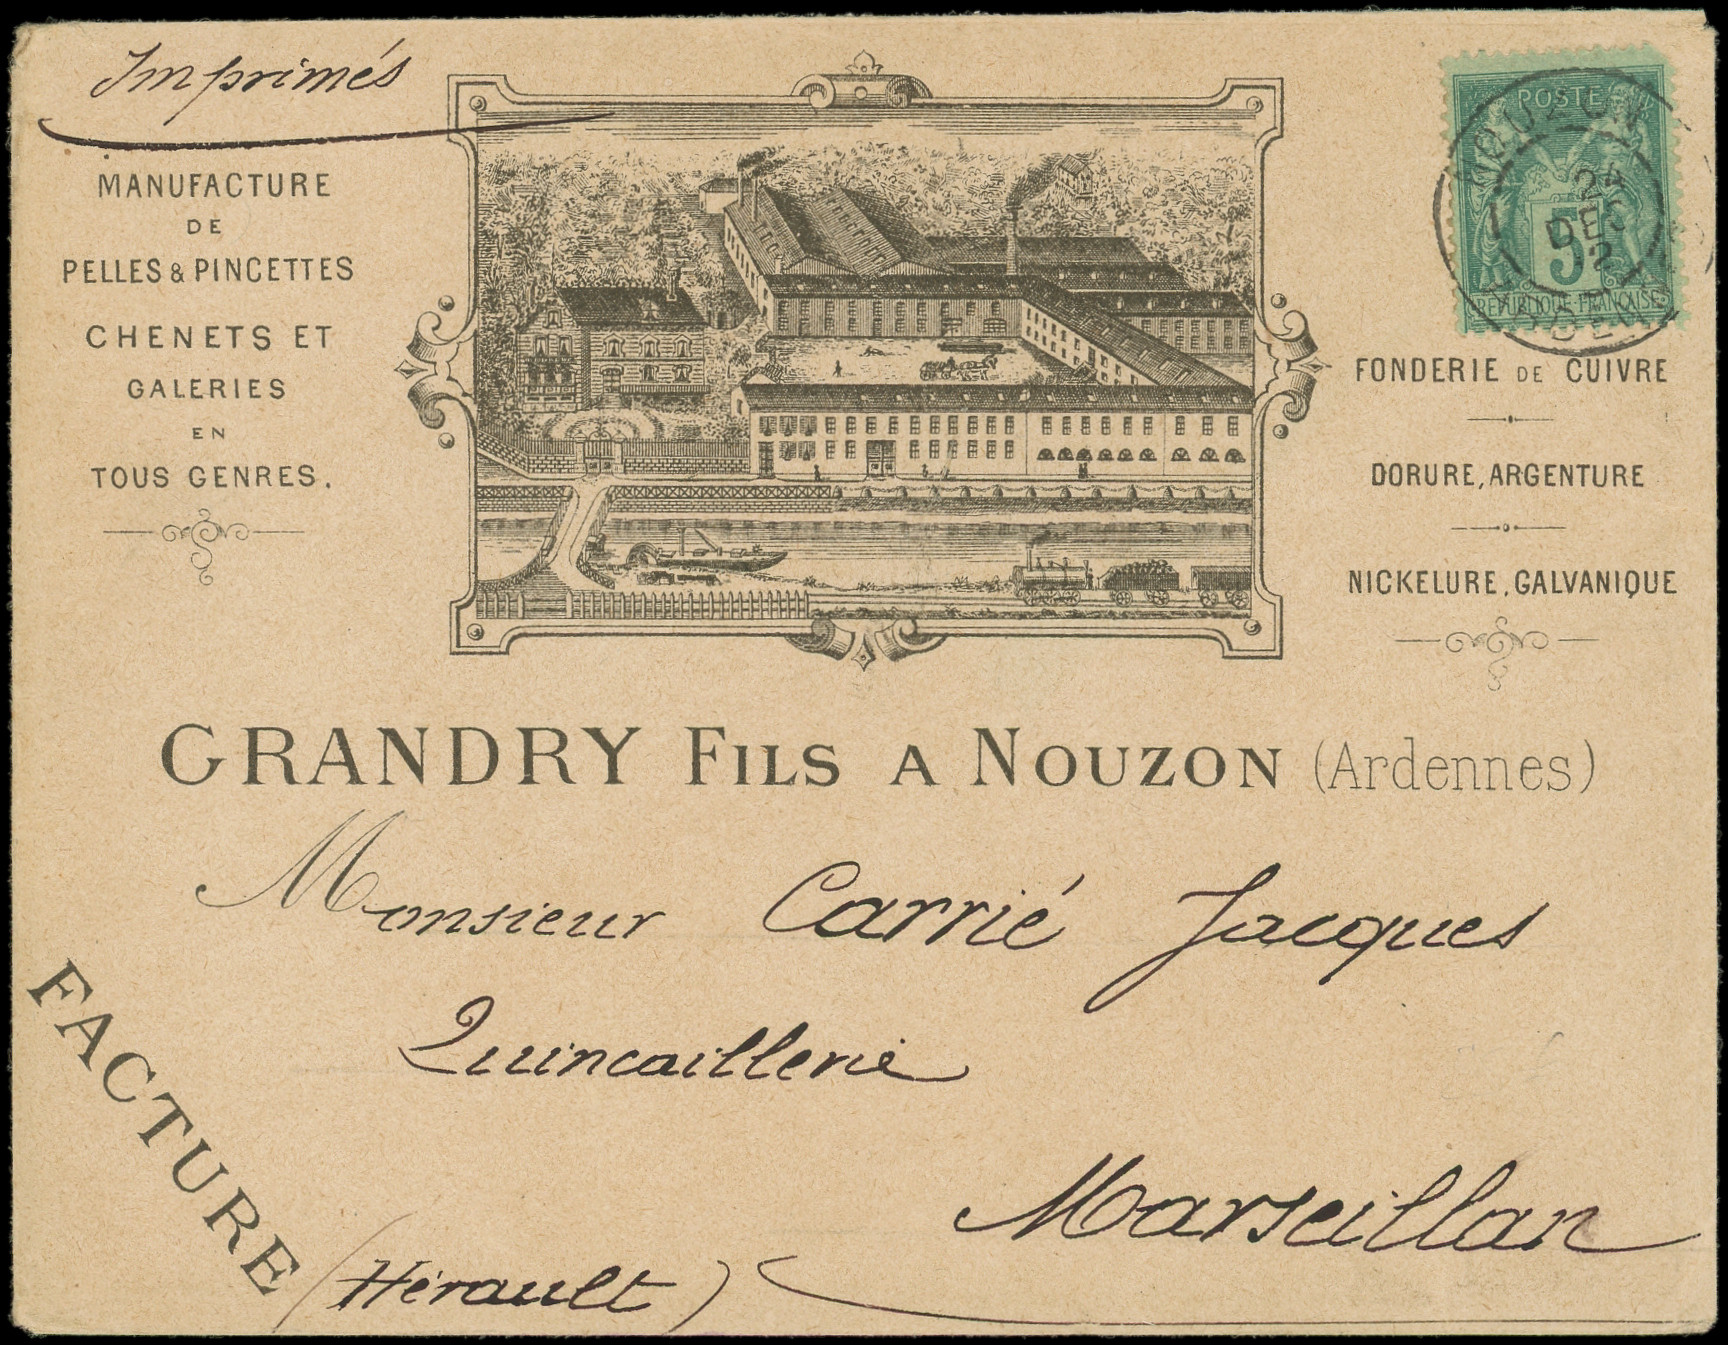 Imprimés
MANUFACTURE
DE
PELLES & PINCETTES
CHENETS ET
GALERIES
EN
TOUS GENRES.
POSTE
5
RÉPUBLIQUE FRANÇAISE
NOUZON
24
DEC
FONDERIE DE CUIVRE
DORURE, ARGENTURE
NICKELURE, GALVANIQUE
GRANDRY FILS A NOUZON (Ardennes)
Monsieur Carrié Jacques
Quincaillerie
Marseillan
(Hérault)
FACTURE